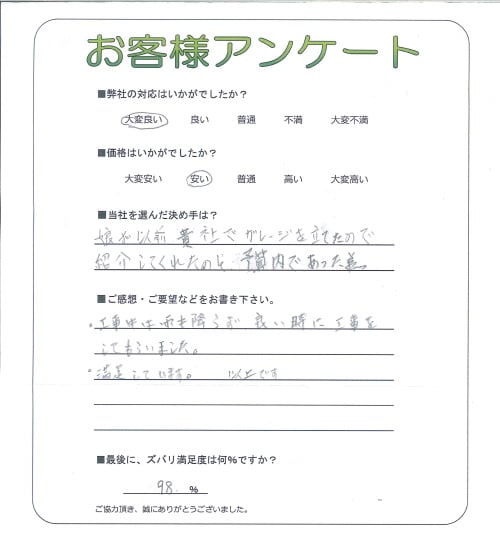 お客様アンケート
■弊社の対応はいかがでしたか？
大変良い 良い 普通 不満 大変不満
■価格はいかがでしたか？
大変安い 安い 普通 高い 大変高い
■当社を選んだ決め手は？
娘が以前貴社でガレージを立てたので
紹介してくれたのと、予算内であった為。
■ご感想・ご要望などをお書き下さい。
・工事中は雨も降らず 良い時に工事を
してもらいました。
・満足しています。 以上です
■最後に、ズバリ満足度は何%ですか？
98. %
ご協力頂き、誠にありがとうございました。